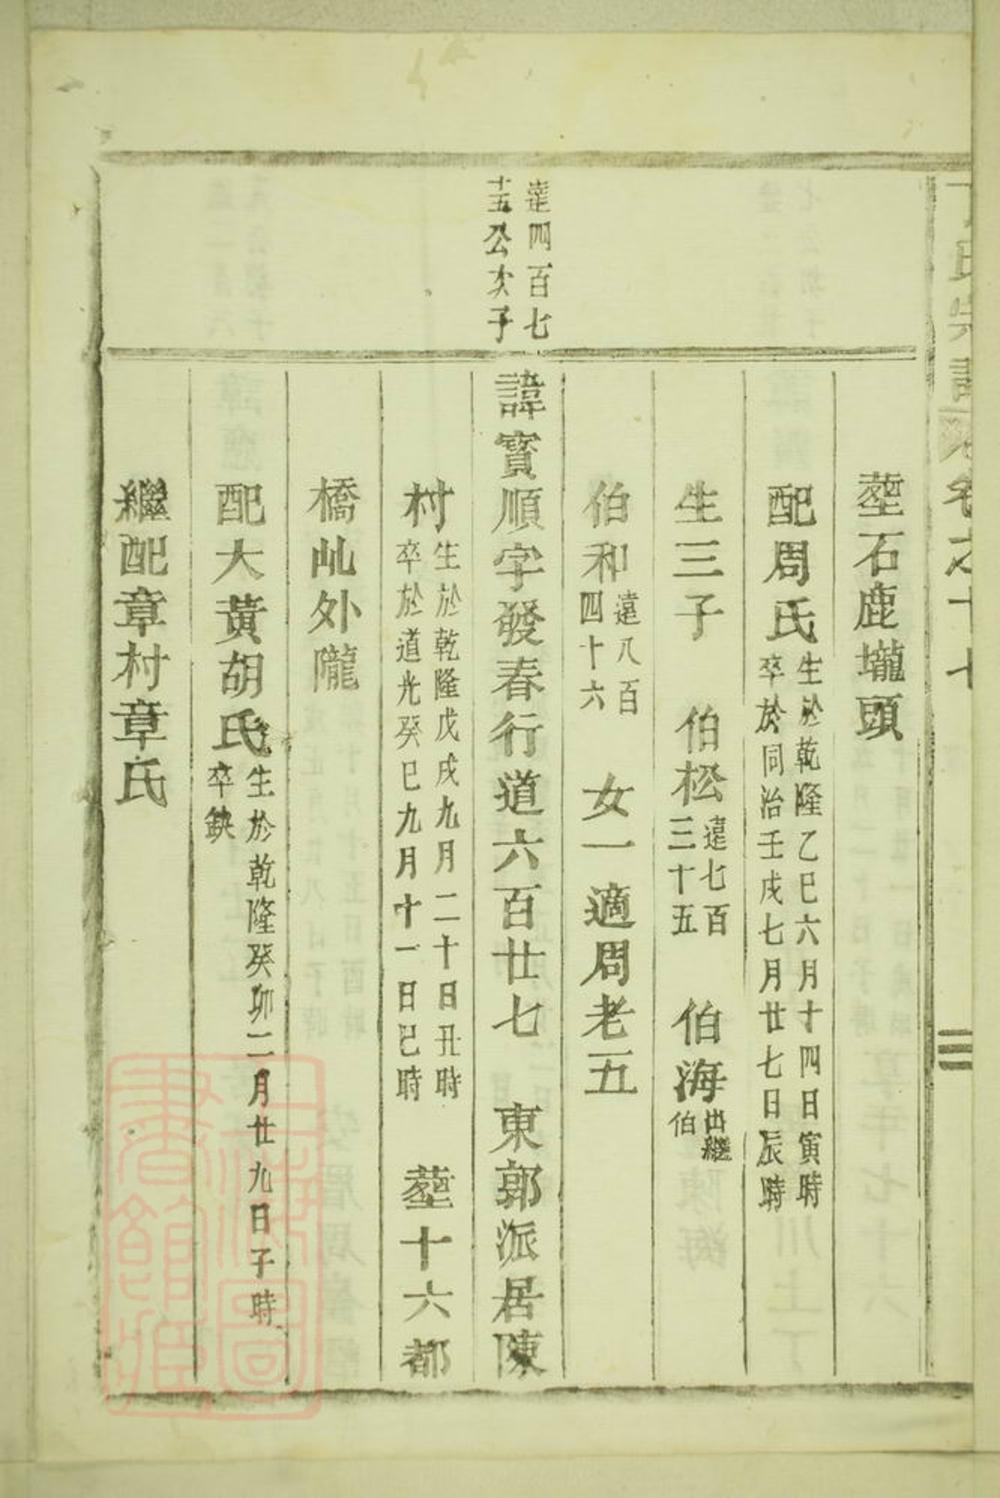 氏宗譜
卷之十七
塟石鹿壠頭
配周氏生於乾隆乙巳六月十四日寅時
卒於同治壬戌七月廿七日辰時
生三子 伯松遠七百
三十五 伯海出繼
伯
伯和遠八百
四十六 女一適周老五
達四百七
十五公次子
諱寳順字發春行道六百廿七 東郭派居陳
村生於乾隆戊戌九月二十日丑時
卒於道光癸巳九月十一日巳時 塟十六都
橋乢外隴
配大黄胡氏生於乾隆癸卯二月廿九日子時
卒缺
繼配章村章氏